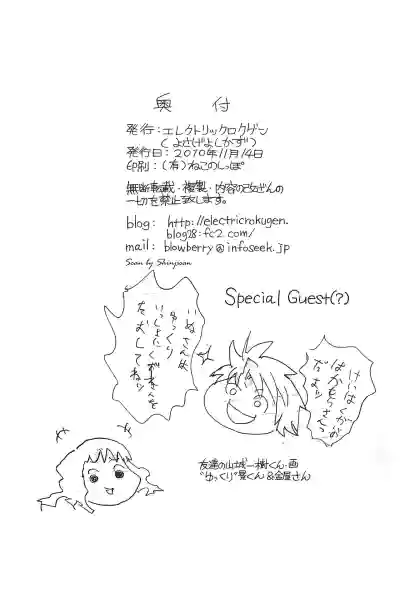 奥付
発行：エレクトリックロクゲン
（よさげよしかず）
発行日：2010年11月14日
印刷：（有）ねこのしっぽ
無断転載・複製・内容の改ざんの
一切を禁止致します。
blog： http://electricrokugen.
blog28.fc2.com/
mail： blowberry@infoseek.jp
Scan by Shinjosan
Special Guest(?)
いぬさんは
ゆっくり
いっしょに
たむしてねッ
だよッ
友達の山城一樹くん・画
"ゆっくり"晃くん&金屋さん